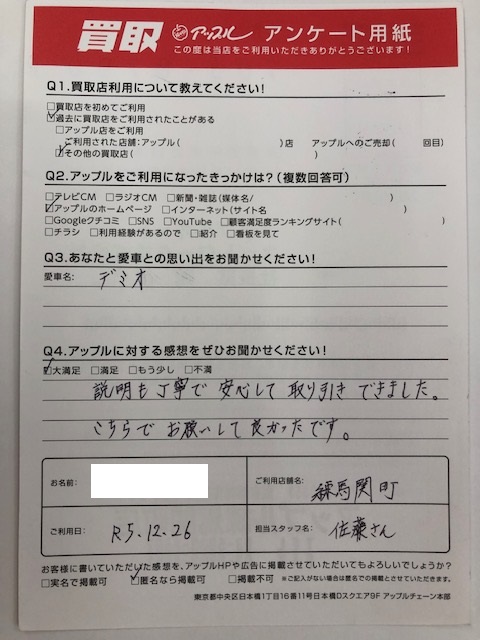 買取 アップル アンケート用紙
この度は当店をご利用いただきありがとうございます！
Q1.買取店利用について教えてください！
□買取店を初めてご利用
☑過去に買取店をご利用されたことがある
□アップル店をご利用
ご利用された店舗:アップル( )店 アップルへのご売却( 回目)
☑その他の買取店( )
Q2.アップルをご利用になったきっかけは？(複数回答可)
□テレビCM □ラジオCM □新聞・雑誌(媒体名/ )
☑アップルのホームページ □インターネット(サイト名 )
□Googleクチコミ □SNS □YouTube □顧客満足度ランキングサイト( )
□チラシ □利用経験があるので □紹介 □看板を見て
Q3.あなたと愛車との思い出をお聞かせください！
愛車名: デミオ
Q4.アップルに対する感想をぜひお聞かせください！
☑大満足 □満足 □もう少し □不満
説明も丁寧で安心して取り引きできました。
こちらでお願いして良かったです。
お名前:
ご利用店舗名: 練馬関町
ご利用日: R5.12.26
担当スタッフ名: 佐藤さん
お客様に書いていただいた感想を、アップルHPや広告に掲載させていただいてもよろしいでしょうか？
□実名で掲載可 ☑匿名なら掲載可 □掲載不可 ※ご記入がない場合は匿名での掲載とさせていただきます。
東京都中央区日本橋1丁目16番11号日本橋Dスクエア9F アップルチェーン本部